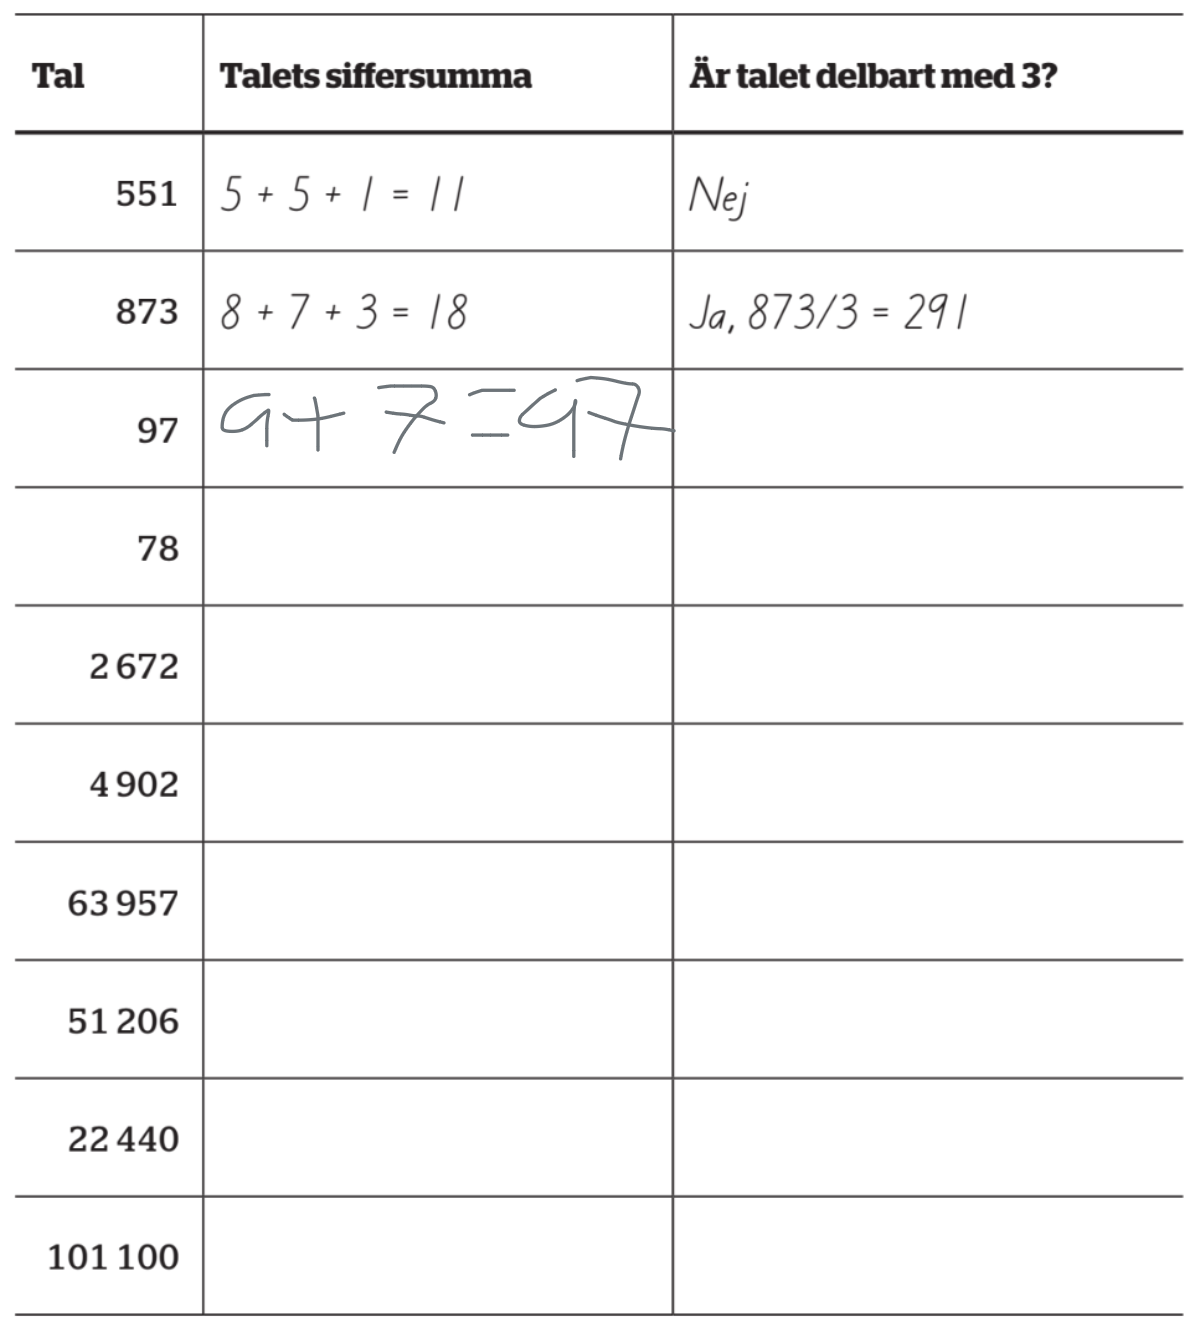 Tal Talets siffersumma Är talet delbart med 3?
551 5 + 5 + 1 = 11 Nej
873 8 + 7 + 3 = 18 Ja, 873/3 = 291
97 9+ 7 = 97
78
2 672
4 902
63 957
51 206
22 440
101 100